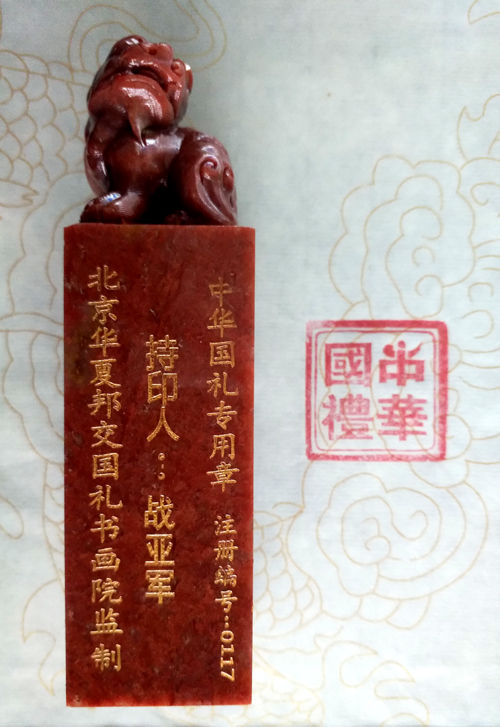 中华国礼专用章 注册编号:0117
持印人:战亚军
北京华夏邦交国礼书画院监制
中華
國禮